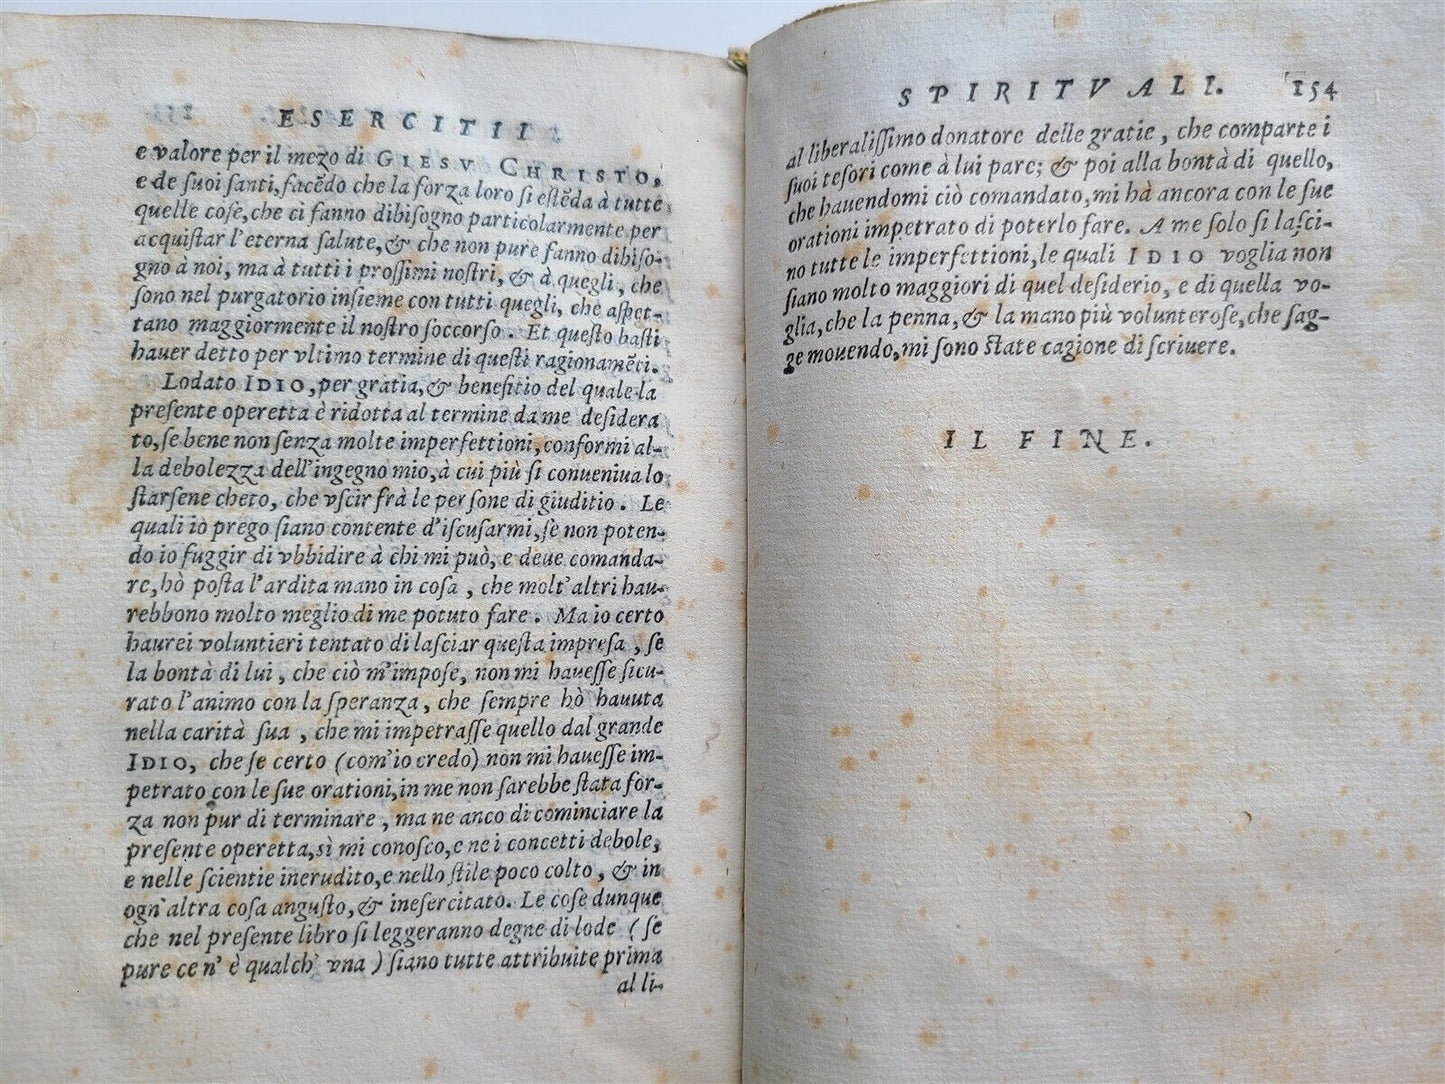 ESERCITII
e valore per il mezo di GIESV CHRISTO,
e de suoi santi, facẽdo che la forza loro si estẽda à tutte
quelle cose, che ci fanno dibisogno particolarmente per
acquistar l'eterna salute, & che non pure fanno dibiso-
gno à noi, ma à tutti i prossimi nostri, & à quegli, che
sono nel purgatorio insieme con tutti quegli, che aspet-
tano maggiormente il nostro soccorso. Et questo basti
hauer detto per vltimo termine di questi ragionamẽti.
Lodato IDIO, per gratia, & benefitio del quale la
presente operetta è ridotta al termine da me desidera
to, se bene non senza molte imperfettioni, conformi al-
la debolezza dell'ingegno mio, à cui più si conueniua lo
starsene cheto, che vscir frà le persone di giuditio. Le
quali io prego siano contente d'iscusarmi, se non poten-
do io fuggir di vbbidire à chi mi può, e deue comanda-
re, hò posta l'ardita mano in cosa, che molt'altri hau-
rebbono molto meglio di me potuto fare. Ma io certo
haurei voluntieri tentato di lasciar questa impresa, se
la bontà di lui, che ciò m'impose, non mi hauesse sicu-
rato l'animo con la speranza, che sempre hò hauuta
nella carità sua, che mi impetrasse quello dal grande
IDIO, che se certo (com'io credo) non mi hauesse im-
petrato con le sue orationi, in me non sarebbe stata for-
za non pur di terminare, ma ne anco di cominciare la
presente operetta, sì mi conosco, e ne i concetti debole,
e nelle scientie inerudito, e nello stile poco colto, & in
ogn'altra cosa angusto, & inesercitato. Le cose dunque
che nel presente libro si leggeranno degne di lode (se
pure ce n'è qualch'vna) siano tutte attribuite prima
al li-
SPIRITVALI. 154
al liberalissimo donatore delle gratie, che comparte i
suoi tesori come à lui pare; & poi alla bontà di quello,
che hauendomi ciò comandato, mi hà ancora con le sue
orationi impetrato di poterlo fare. A me solo si lasci-
no tutte le imperfettioni, le quali IDIO voglia non
siano molto maggiori di quel desiderio, e di quella vo-
glia, che la penna, & la mano più volunterose, che sag-
ge mouendo, mi sono state cagione di scriuere.
IL FINE.